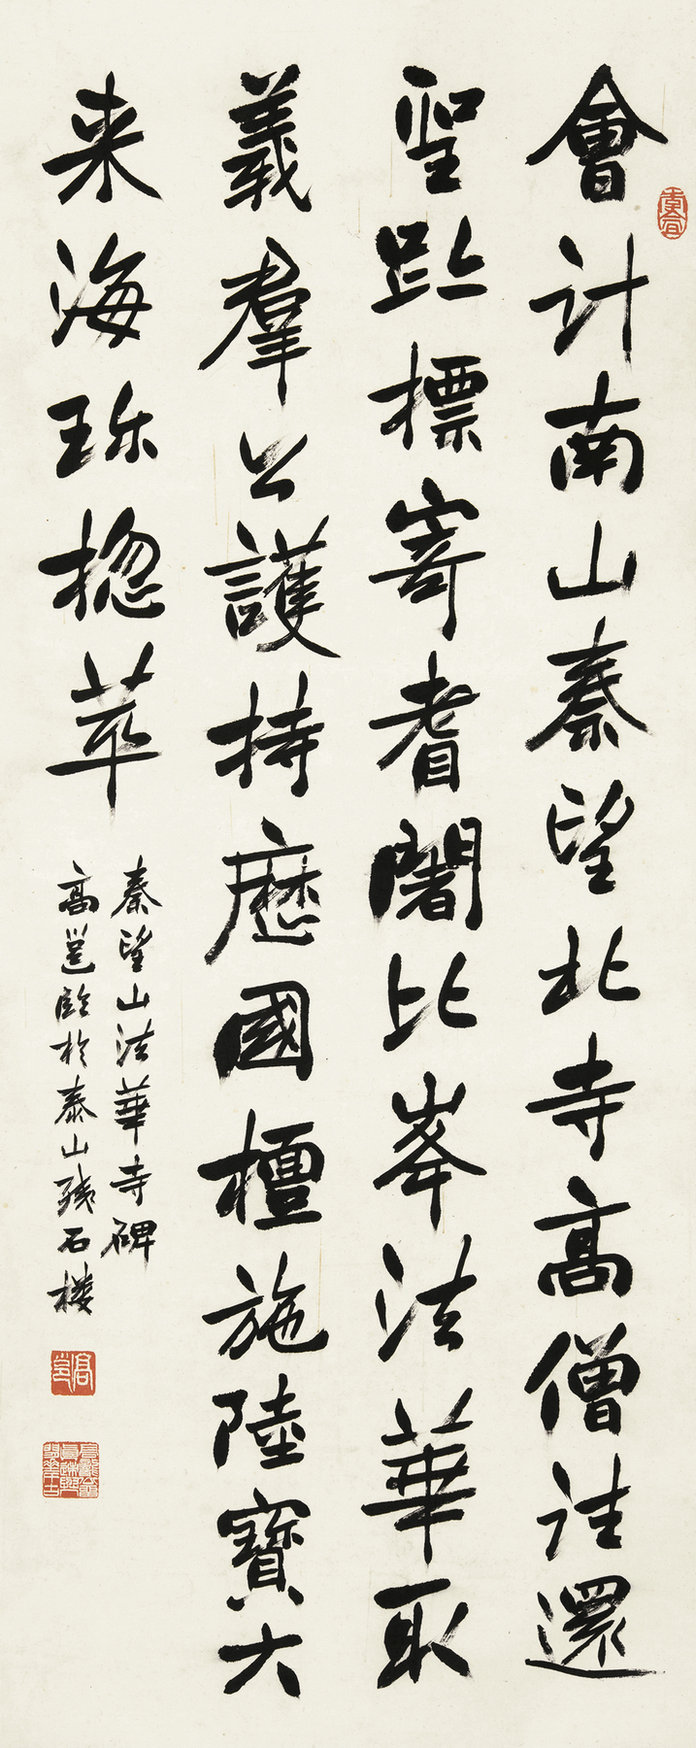 會計南山秦望北寺高僧往還
聖趾標寄耆闍比峯法華取
義羣公護持歷國檀施陸寶大
来海珎揔萃
秦望山法華寺碑
高邕臨於泰山殘石樓
高邕